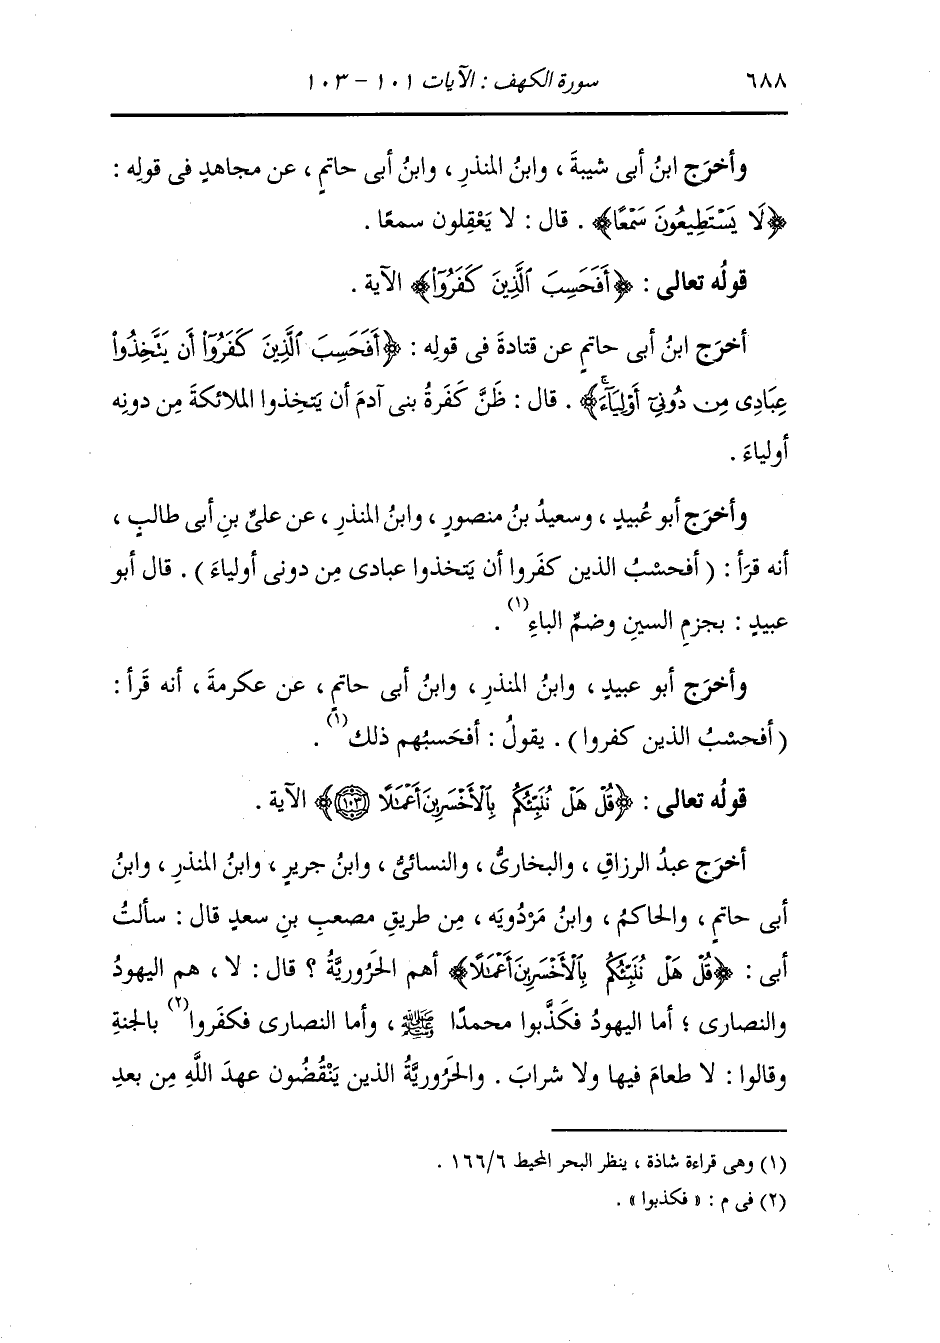 ٦٨٨ سورة الكهف : الآيات ١٠١ - ١٠٣
وأخرَج ابنُ أبى شيبةَ ، وابنُ المنذرِ ، وابنُ أبى حاتمٍ ، عن مجاهدٍ فى قولِه :
﴿لَا يَسْتَطِيعُونَ سَمْعًا﴾ . قال : لا يَعْقِلون سمعًا .
قولُه تعالى : ﴿أَفَحَسِبَ ٱلَّذِينَ كَفَرُوٓا۟﴾ الآية .
أخرَج ابنُ أبى حاتمٍ عن قتادةَ فى قولِه : ﴿أَفَحَسِبَ ٱلَّذِينَ كَفَرُوٓا۟ أَن يَتَّخِذُوا۟
عِبَادِى مِن دُونِىٓ أَوْلِيَآءَۚ﴾ . قال : ظَنَّ كَفَرةُ بنى آدمَ أن يَتخِذوا الملائكةَ مِن دونِه
أولياءَ .
وأخرَج أبو عُبيدٍ ، وسعيدُ بنُ منصورٍ ، وابنُ المنذرِ ، عن علىِّ بنِ أبى طالبٍ ،
أنه قرَأ : ( أفحسْبُ الذين كفَروا أن يَتخذوا عبادى مِن دونى أولياءَ ) . قال أبو
عبيدٍ : بجزمِ السينِ وضمِّ الباءِ(١) .
وأخرَج أبو عبيدٍ ، وابنُ المنذرِ ، وابنُ أبى حاتمٍ ، عن عكرمةَ ، أنه قَرأ :
( أفحسْبُ الذين كفروا ) . يقولُ : أفحَسبُهم ذلك(١) .
قولُه تعالى : ﴿قُلْ هَلْ نُنَبِّئُكُم بِٱلْأَخْسَرِينَ أَعْمَـٰلًا ۝١٠٣﴾ الآية .
أخرَج عبدُ الرزاقِ ، والبخارىُّ ، والنسائىُّ ، وابنُ جريرٍ ، وابنُ المنذرِ ، وابنُ
أبى حاتمٍ ، والحاكمُ ، وابنُ مَرْدُويَه ، مِن طريقِ مصعبِ بنِ سعدٍ قال : سألتُ
أبى : ﴿قُلْ هَلْ نُنَبِّئُكُم بِٱلْأَخْسَرِينَ أَعْمَـٰلًا﴾ أهم الحَرُوريَّةُ ؟ قال : لا ، هم اليهودُ
والنصارى ؛ أما اليهودُ فكَذَّبوا محمدًا ﷺ ، وأما النصارى فكفَروا(٢) بالجنةِ
وقالوا : لا طعامَ فيها ولا شرابَ . والحَرُوريَّةُ الذين يَنْقُضُون عهدَ اللَّهِ مِن بعدِ
(١) وهى قراءة شاذة ، ينظر البحر المحيط ١٦٦/٦ .
(٢) فى م : « فكذبوا » .